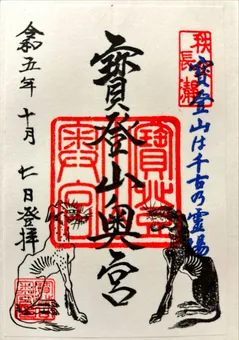 秩父
長瀞
寶登山は千古の霊場
寶登山奥宮
寶登山
奥宮
令和五年
十月
廿日登拝